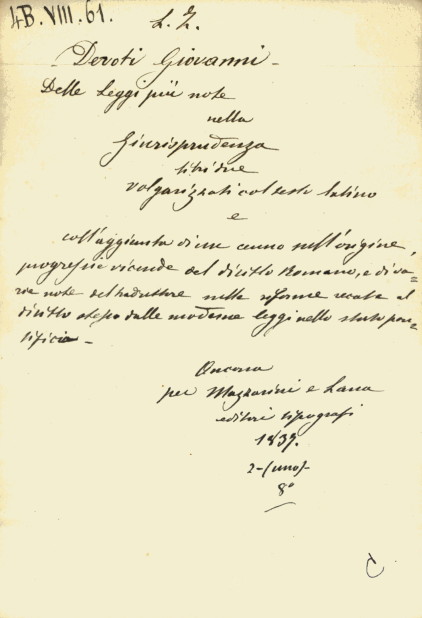 4B.VIII.61.
L. Z.
Devoti Giovanni -
Delle Leggi più note
nella
Giurisprudenza
libri due
volgarizzati col testo latino
e
coll'aggiunta di un cenno sull'origine,
progressi e vicende del diritto Romano, e di va=
rie note del traduttore sulle riforme recate al
diritto stesso dalle moderne leggi nello stato pon=
tificio -
Ancona
per Mazzarini e Lana
editori tipografi
1839.
2-(uno)-
8°
C